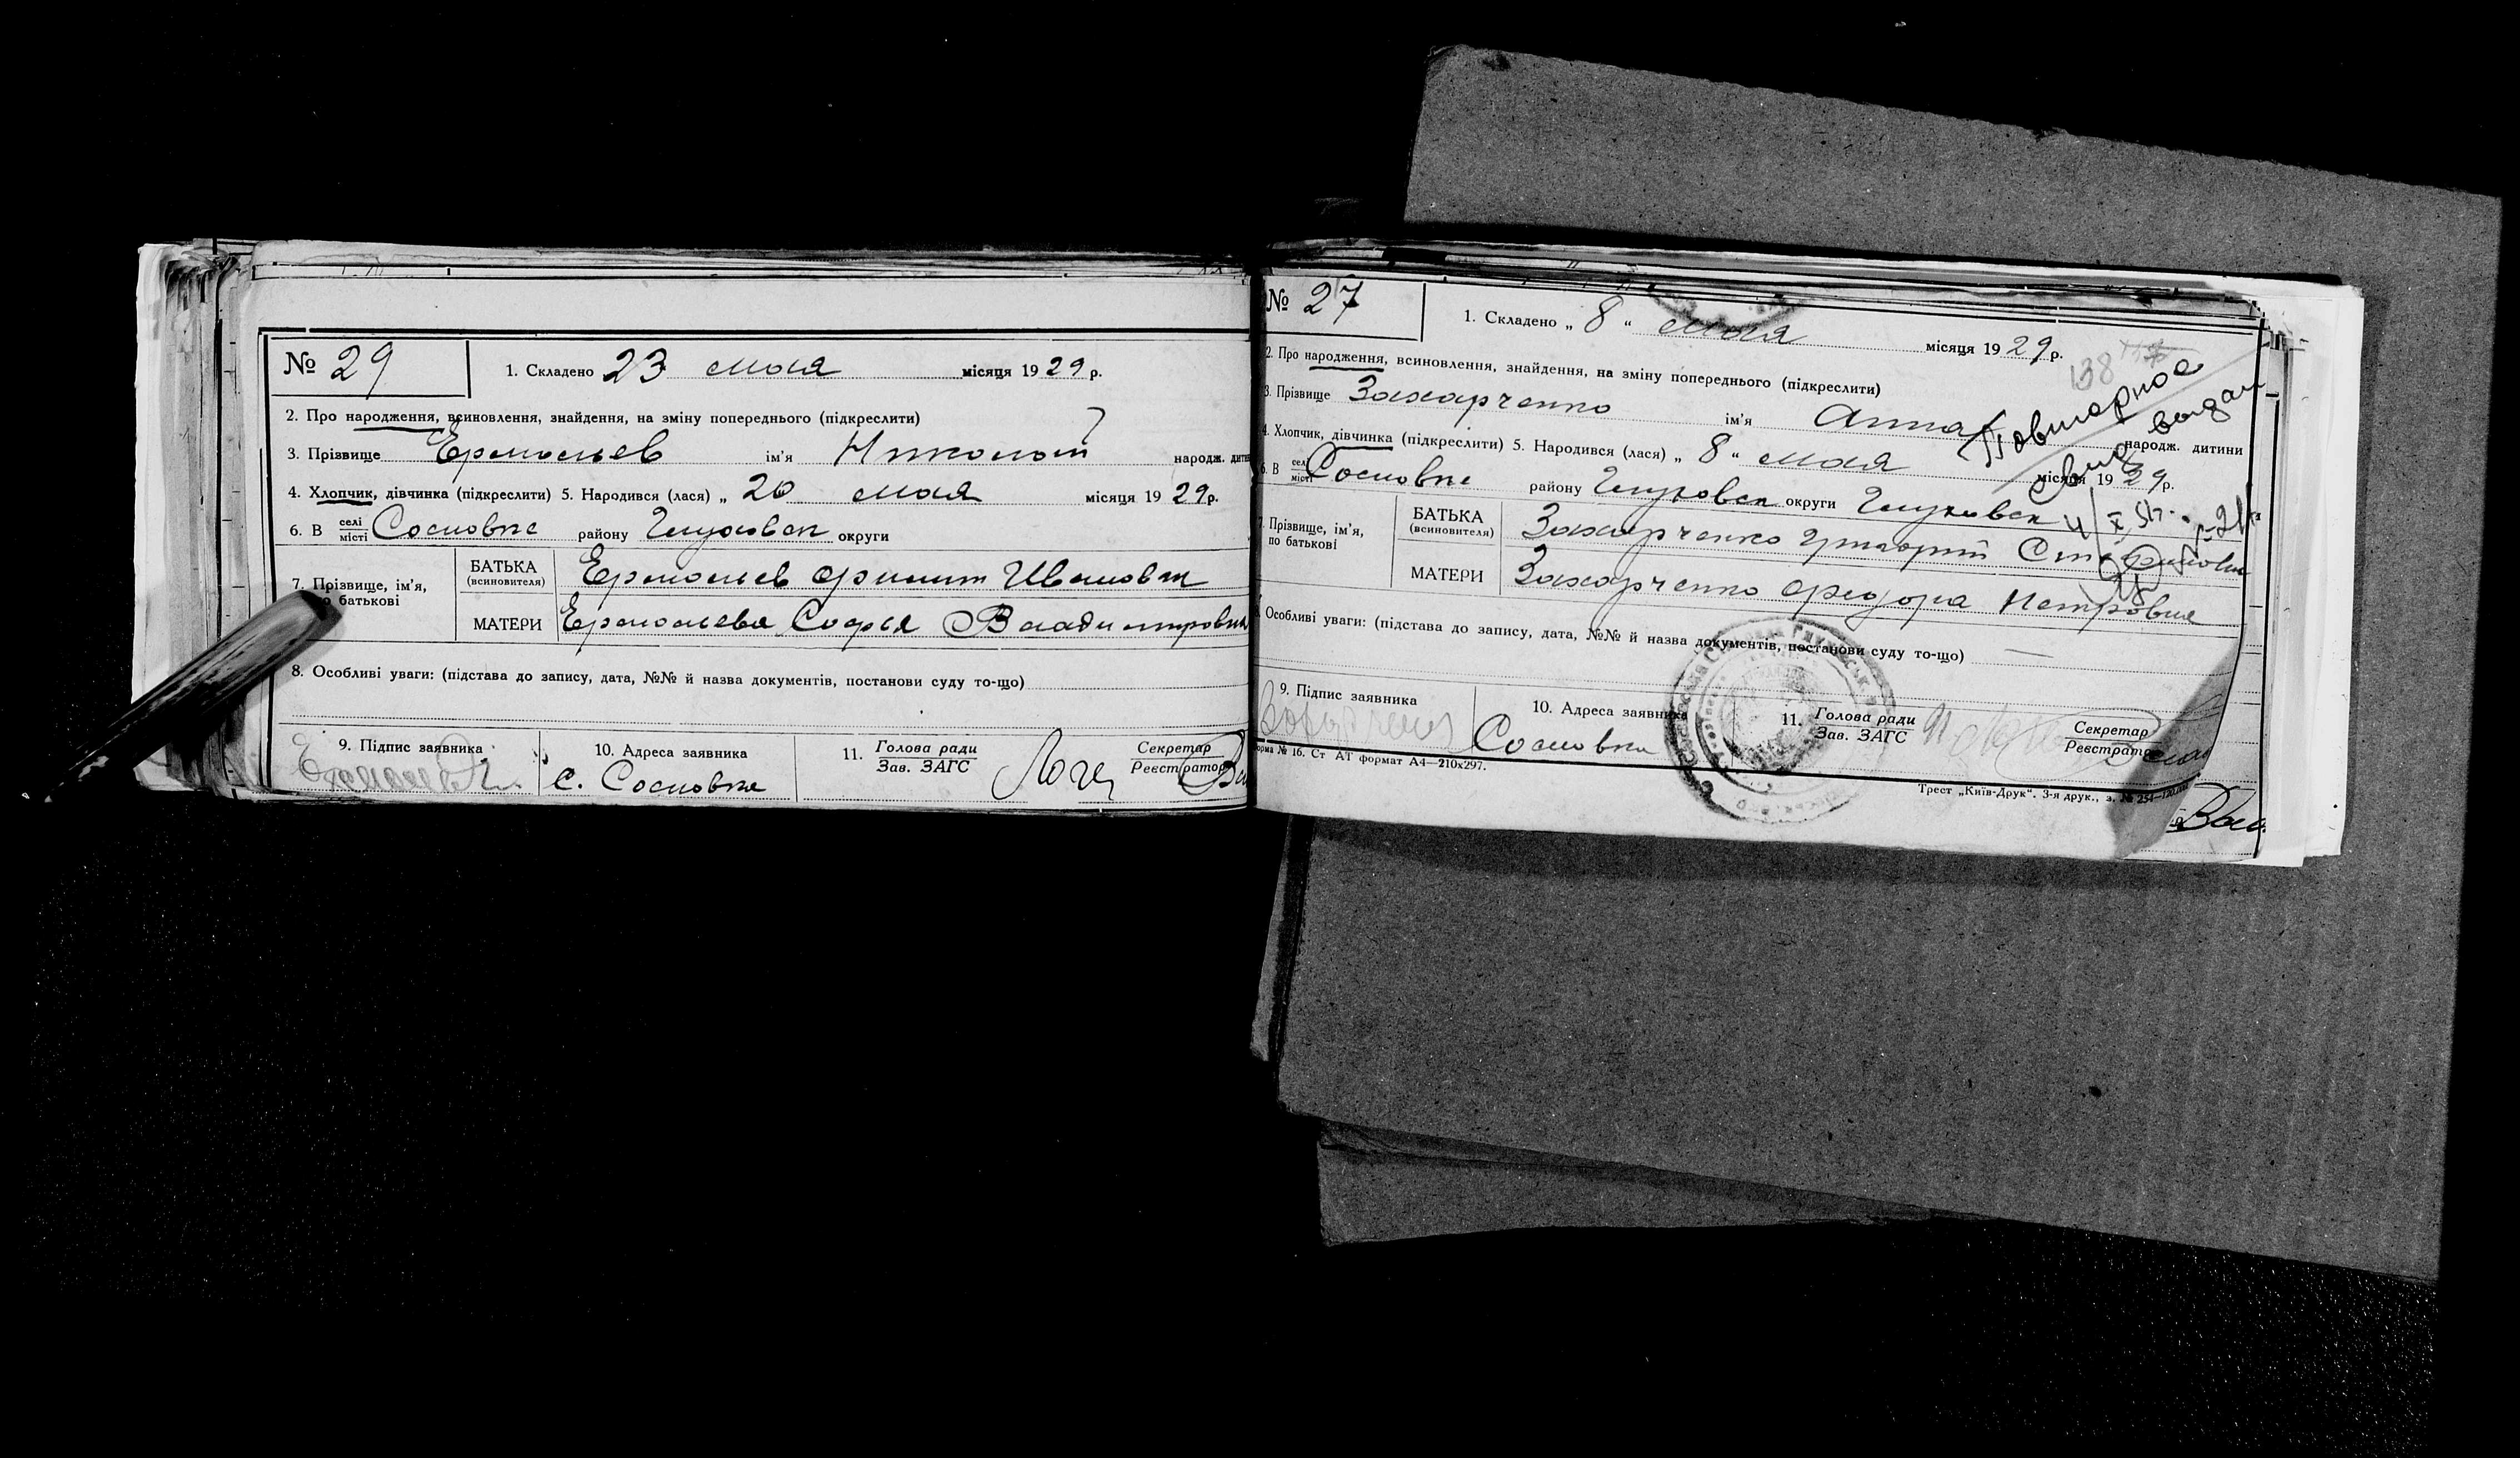 № 29
1. Складено 23 мая місяця 1929 р.
2. Про народження, всиновлення, знайдення, на зміну попереднього (підкреслити)
3. Прізвище Ермольев ім'я Николай народж. дити
4. Хлопчик, дівчинка (підкреслити) 5. Народився (лася) „ 20 мая місяця 1929 р.
6. В селі місті Сосновке району Глуховск округи
7. Прізвище, ім'я, по батькові
БАТЬКА (всиновителя) Ермольев Филип Иванович
МАТЕРИ Ермольева Софья Владимировн
8. Особливі уваги: (підстава до запису, дата, №№ й назва документів, постанови суду то-що)
9. Підпис заявника
10. Адреса заявника
с. Сосновка
11. Голова ради Зав. ЗАГС
Секретар Реєстратор
№ 27
1. Складено „ 8 “ мая місяця 1929 р.
138
2. Про народження, всиновлення, знайдення, на зміну попереднього (підкреслити)
Повторное
выдан
3. Прізвище Захарченко ім'я Анна народж. дитини
4. Хлопчик, дівчинка (підкреслити) 5. Народився (лася) „ 8 “ мая місяця 1929 р.
6. В селі місті Сосновке району Глуховск округи Глуховск
7. Прізвище, ім'я, по батькові
БАТЬКА (всиновителя) Захарченко Григорий
МАТЕРИ Захарченко Федора Петровна
8. Особливі уваги: (підстава до запису, дата, №№ й назва документів, постанови суду то-що) —
9. Підпис заявника
10. Адреса заявника
Сосновка
11. Голова ради Зав. ЗАГС
Секретар Реєстратор
орма № 16. Ст АТ формат А4—210х297.
Трест „Київ-Друк“. 3-я друк., з. № 254